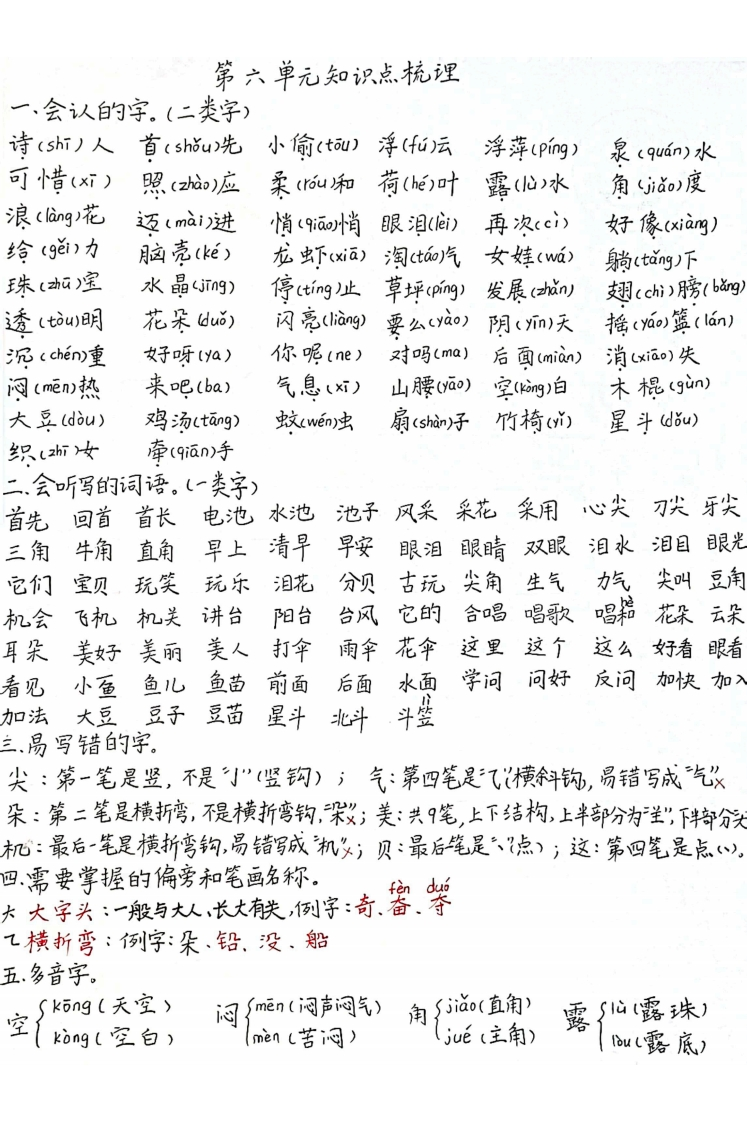 第六单元知识点梳理
一、会认的字。(二类字)
诗(shī)人 首(shǒu)先 小偷(tōu) 浮(fú)云 浮萍(píng) 泉(quán)水
可惜(xī) 照(zhào)应 柔(róu)和 荷(hé)叶 露(lù)水 角(jiǎo)度
浪(làng)花 迈(mài)进 悄(qiāo)悄 眼泪(lèi) 再次(cì) 好像(xiàng)
给(gěi)力 脑壳(ké) 龙虾(xiā) 淘(táo)气 女娃(wá) 躺(tǎng)下
珠(zhū)宝 水晶(jīng) 停(tíng)止 草坪(píng) 发展(zhǎn) 翅(chì)膀(bǎng)
透(tòu)明 花朵(duǒ) 闪亮(liàng) 要么(yào) 阴(yīn)天 摇(yáo)篮(lán)
沉(chén)重 好呀(ya) 你呢(ne) 对吗(ma) 后面(miàn) 消(xiāo)失
闷(mēn)热 来吧(ba) 气息(xī) 山腰(yāo) 空(kòng)白 木棍(gùn)
大豆(dòu) 鸡汤(tāng) 蚊(wén)虫 扇(shàn)子 竹椅(yǐ) 星斗(dǒu)
织(zhī)女 牵(qiān)手
二、会听写的词语。(一类字)
首先 回首 首长 电池 水池 池子 风采 采花 采用 心尖 刀尖 牙尖
三角 牛角 直角 早上 清早 早安 眼泪 眼睛 双眼 泪水 泪目 眼光
它们 宝贝 玩笑 玩乐 泪花 分贝 古玩 尖角 生气 力气 尖叫 豆角
机会 飞机 机关 讲台 阳台 台风 它的 合唱 唱歌 唱和(hè) 花朵 云朵
耳朵 美好 美丽 美人 打伞 雨伞 花伞 这里 这个 这么 好看 眼看
看见 小鱼 鱼儿 鱼苗 前面 后面 水面 学问 问好 反问 加快 加入
加法 大豆 豆子 豆苗 星斗 北斗 斗笠(lì)
三、易写错的字。
尖：第一笔是竖，不是“亅”(竖钩)； 气：第四笔是“⺄”(横斜钩)，易错写成“气”×
朵：第二笔是横折弯，不是横折弯钩，“朵”×；美：共9笔，上下结构，上半部分为“𦍌”，下半部分为大
机：最后一笔是横折弯钩，易错写成“机”×；贝：最后一笔是“丶”(点)；这：第四笔是点(丶)。
四、需要掌握的偏旁和笔画名称。
大 大字头：一般与大人、长大有关，例字：奇、奋(fèn)、夺(duó)
㇍ 横折弯：例字：朵、铅、没、船
五、多音字。
空{kōng(天空) 闷{mēn(闷声闷气) 角{jiǎo(直角) 露{lù(露珠)
kòng(空白) mèn(苦闷) jué(主角) lòu(露底)